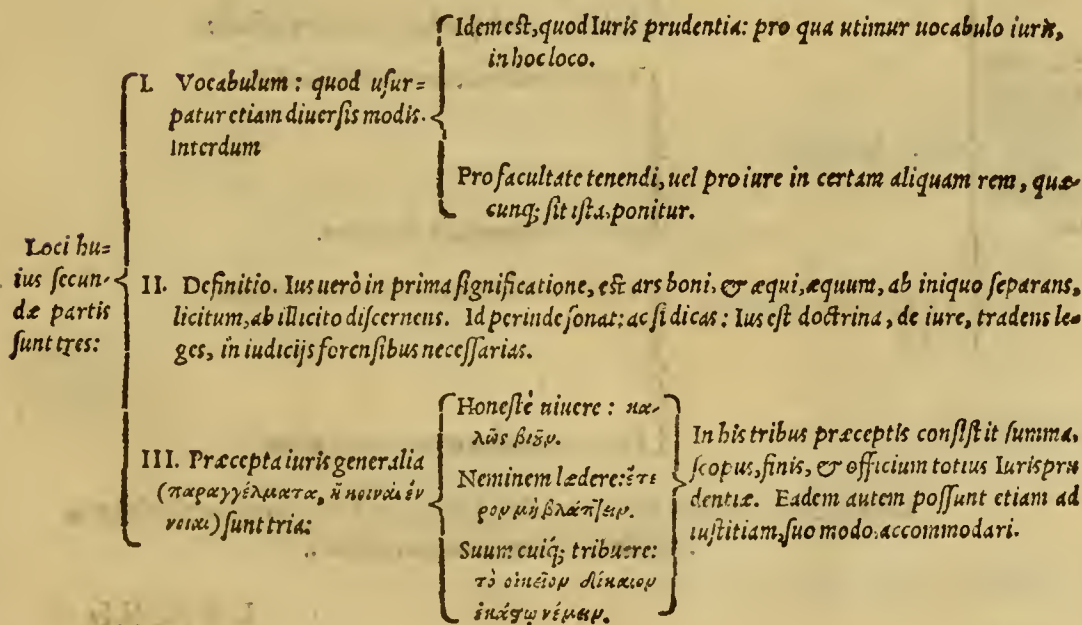 Loci hu=
ius secun-
dæ partis
sunt tres:
I. Vocabulum : quod usur=
patur etiam diuersis modis.
Interdum
Idem est, quod Iuris prudentia: pro qua utimur uocabulo iuris,
in hoc loco.
Pro facultate tenendi, uel pro iure in certam aliquam rem, quæ-
cunq; sit ista, ponitur.
II. Definitio. Ius uerò in prima significatione, est ars boni, & æqui, æquum, ab iniquo separans,
licitum, ab illicito discernens. Id perinde sonat: ac si dicas: Ius est doctrina, de iure, tradens le-
ges, in iudicijs forensibus necessarias.
III. Præcepta iuris generalia
(παραγγέλματα, ἢ κοιναὶ ἔν
νοιαι) sunt tria:
Honestè uiuere : κα-
λῶς βιοῦν.
Neminem lædere: ἕτε
ρον μὴ βλάπτειν.
Suum cuiq; tribuere:
τὸ οἰκεῖον δίκαιον
ἑκάστῳ νέμειν.
In his tribus præceptis consistit summa,
scopus, finis, & officium totius Iurispru
dentiæ. Eadem autem possunt etiam ad
iustitiam, suo modo, accommodari.